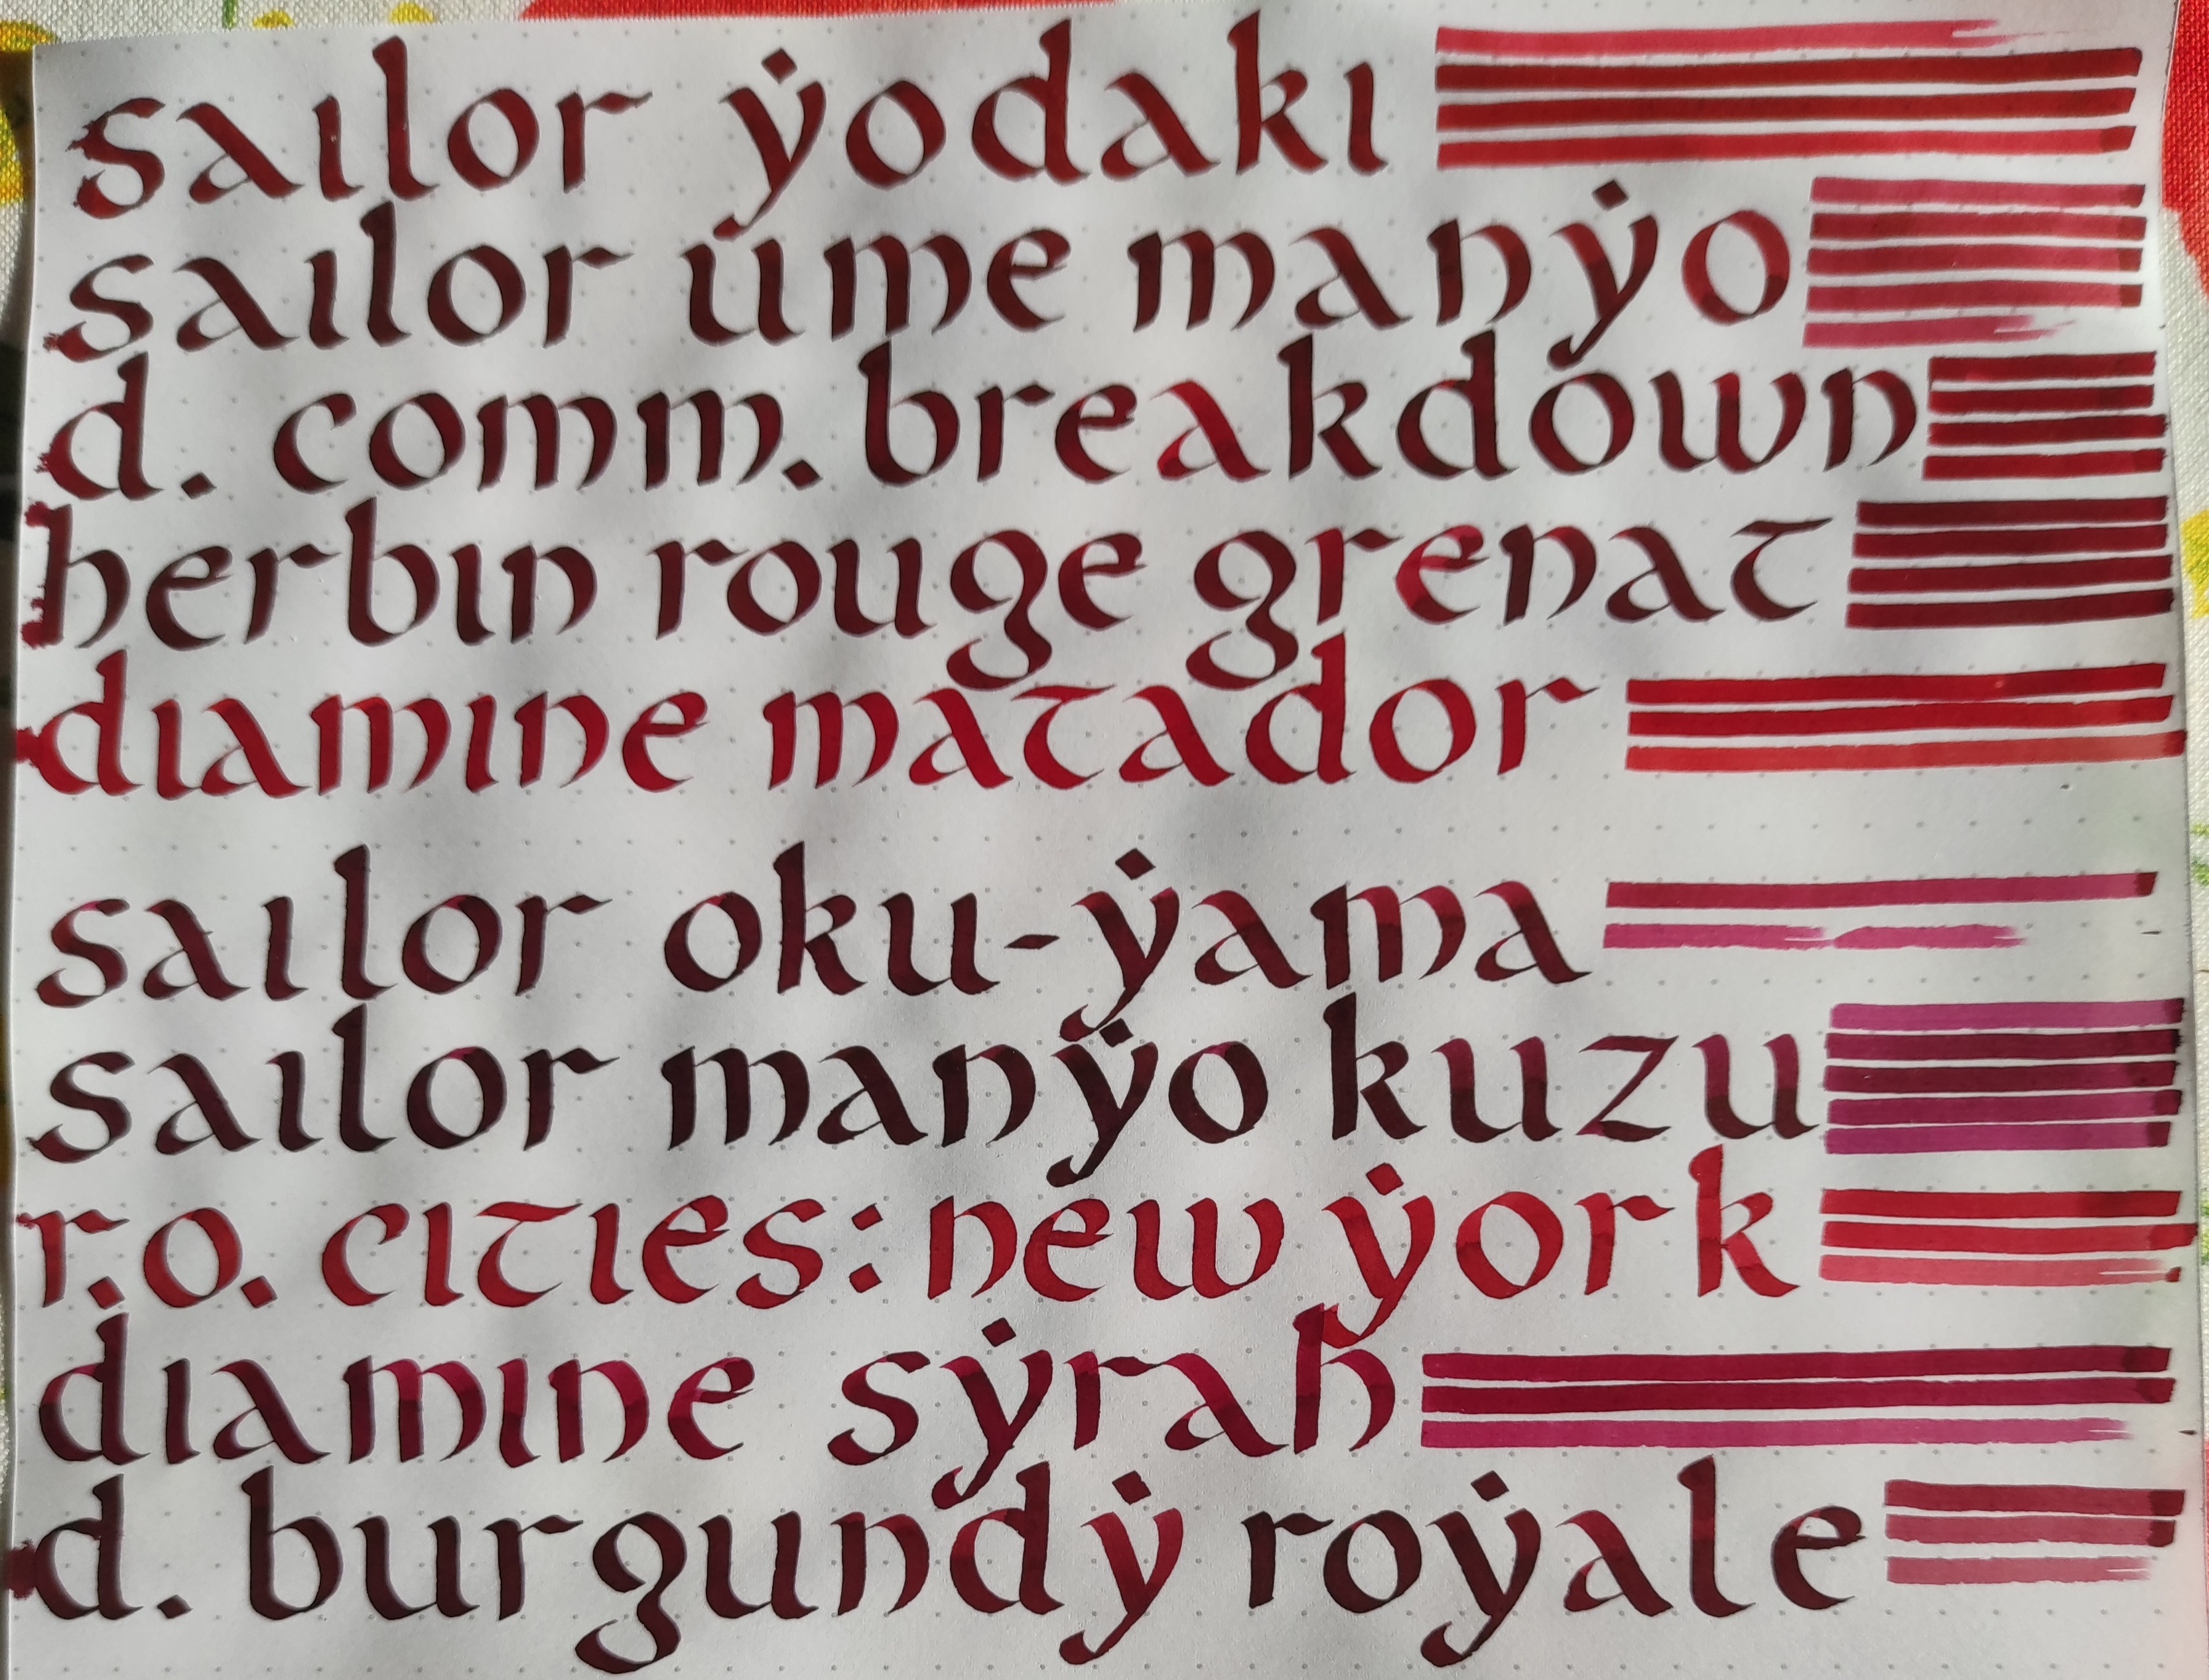 sailor yodaki
sailor ume manyo
d. comm. breakdown
herbin rouge grenat
diamine matador
sailor oku-yama
sailor manyo kuzu
r.o. cities: new york
diamine syrah
d. burgundy royale